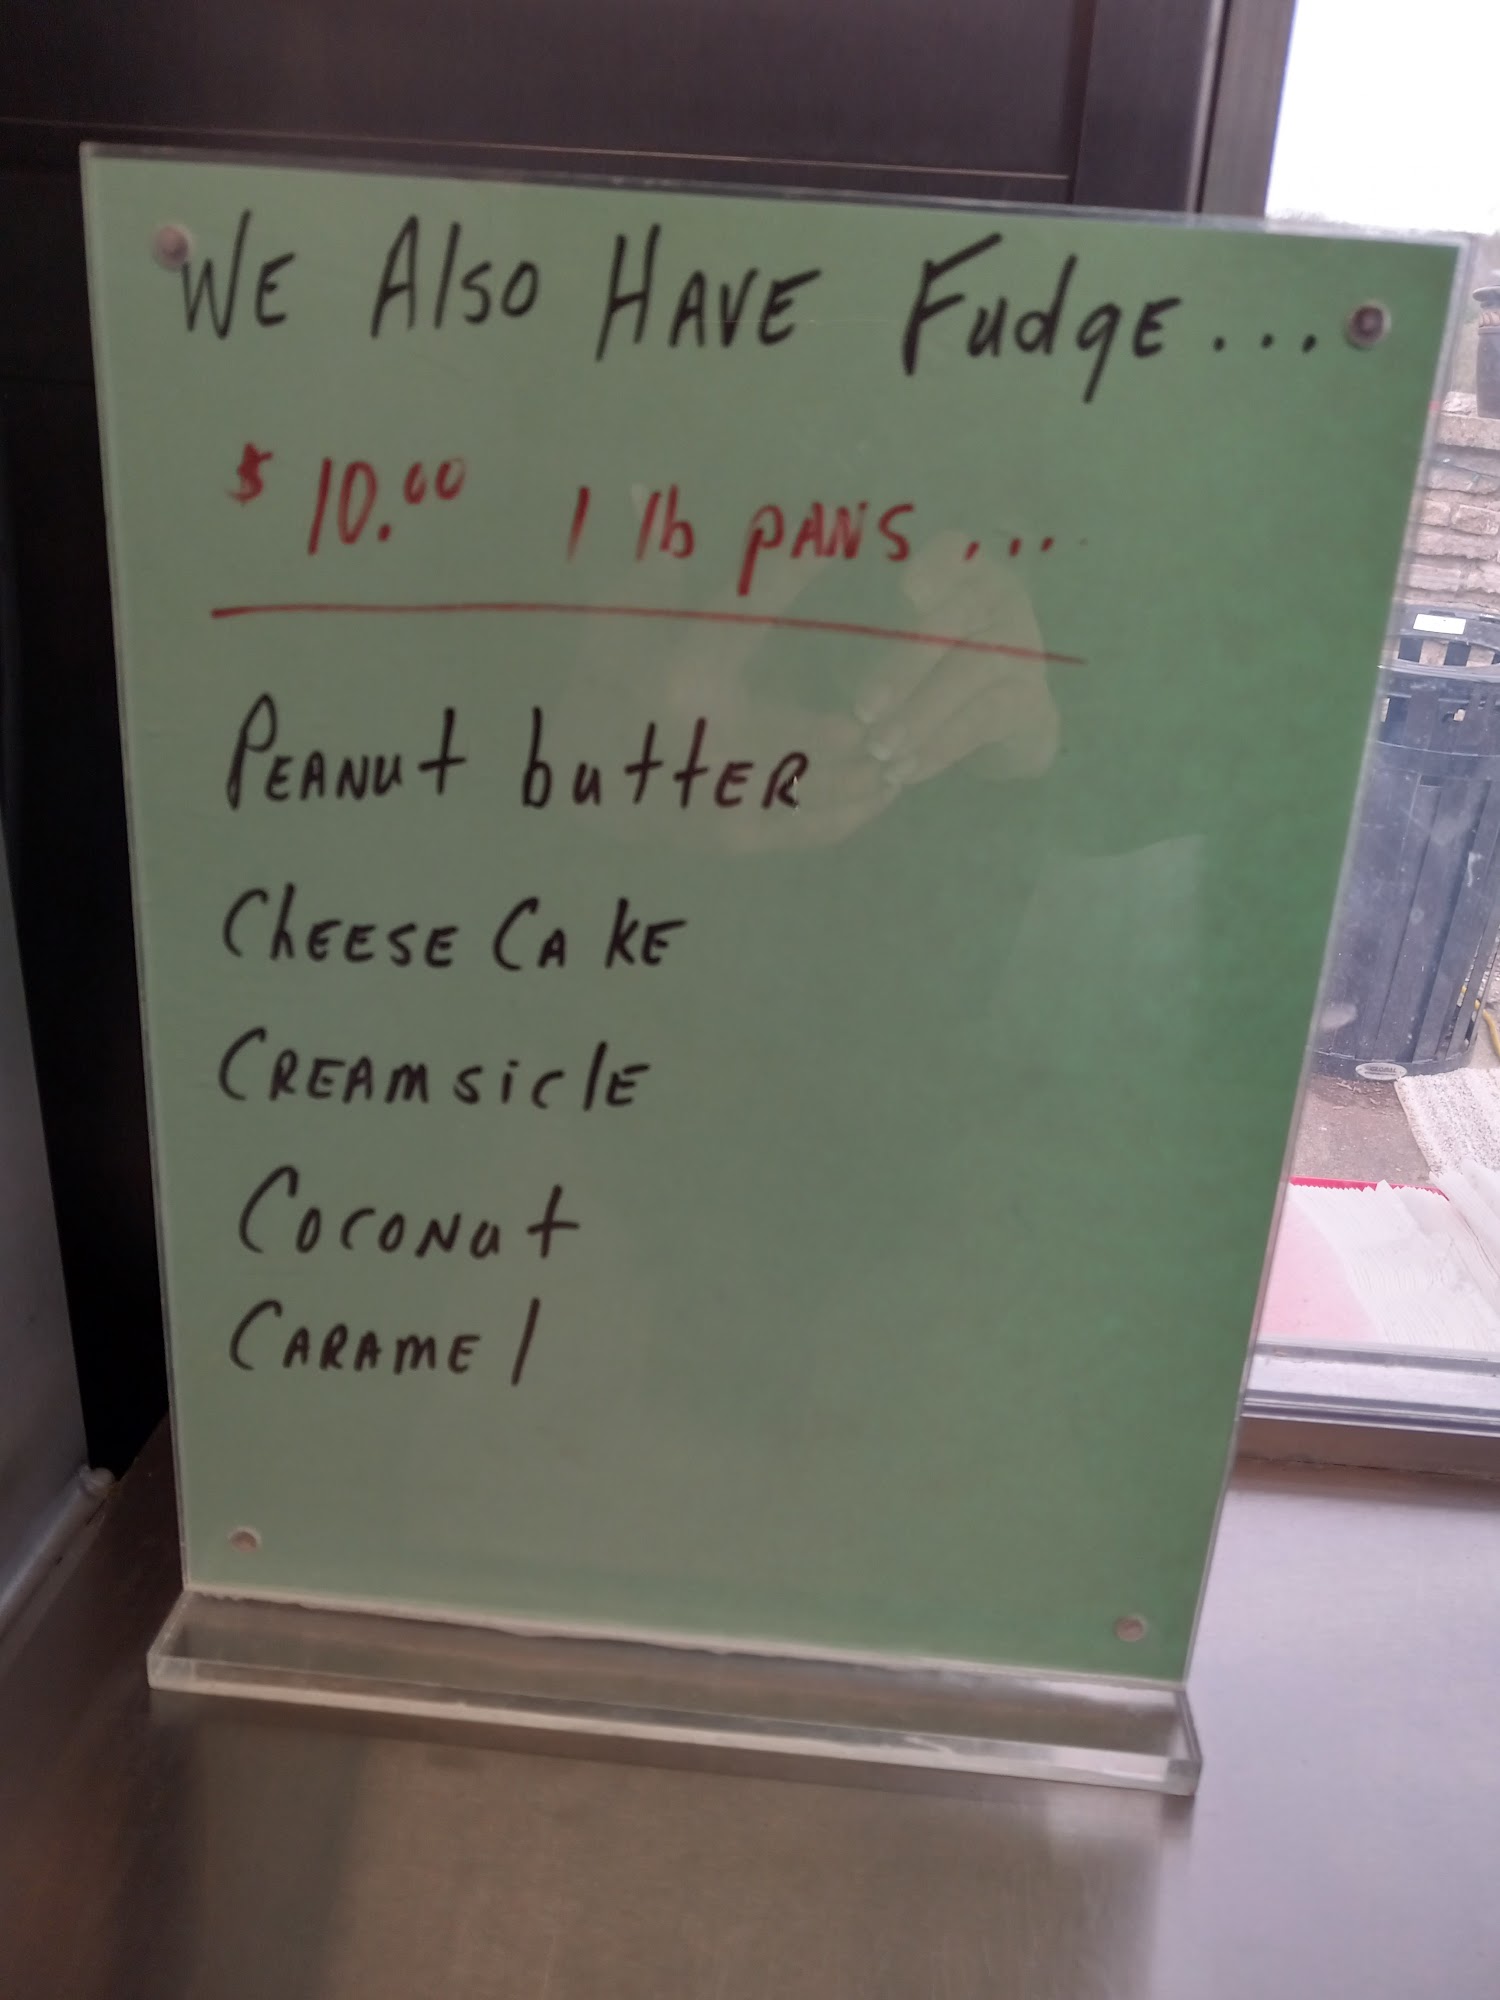 WE Also HAVE Fudge...
$10.00 1 lb pANS...
PEANut buttER
ChEESE CAKE
CREAMsiclE
COCONut
CARAMEl
GLOBAL